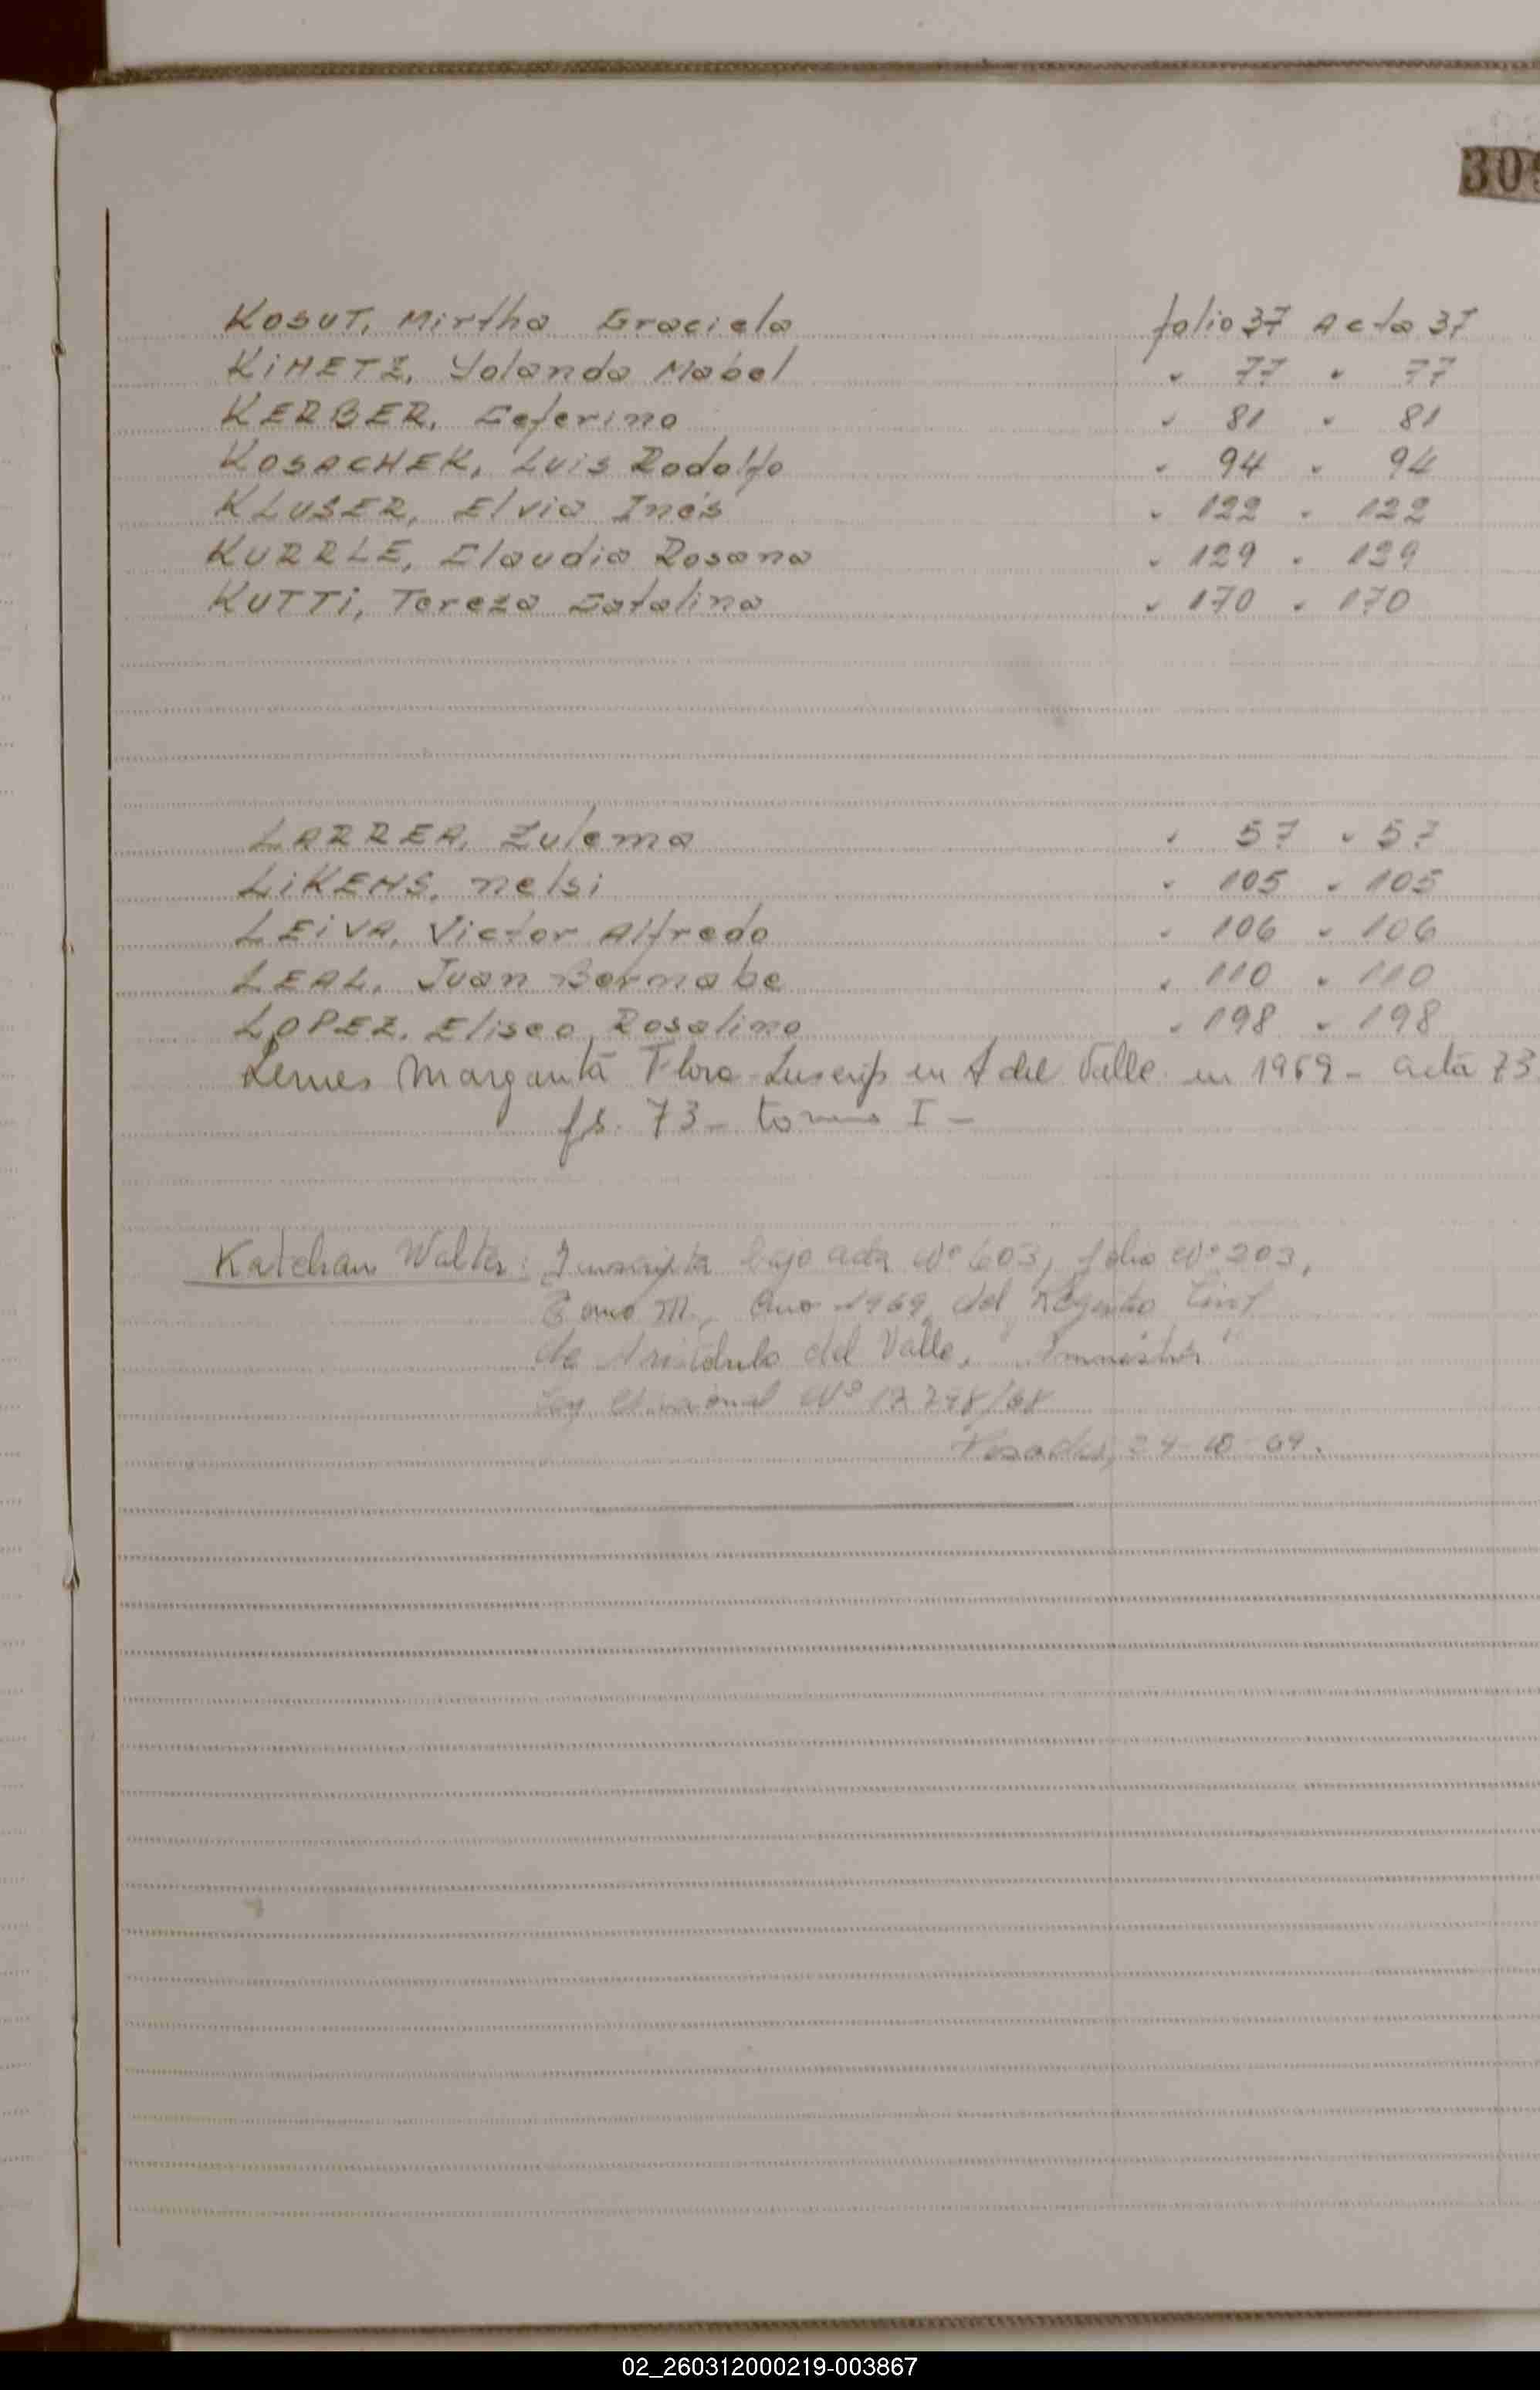 309
KOSUT, Mirtha Graciela folio 37 Acta 37
KiHETZ, Yolanda Mabel " 77 " 77
KERBER, Ceferino " 81 " 81
KOSACHEK, Luis Rodolfo " 94 " 94
KLUSER, Elvia Inés " 122 " 122
KURRLE, Claudia Rosana " 129 " 129
KUTTi, Tereza Catalina " 170 " 170
LARREA, Zulema " 57 " 57
LiKEHS, nelsi " 105 " 105
LEiVA, Victor Alfredo " 106 " 106
LEAL, Juan Bernabe " 110 " 110
LOPEZ, Eliseo Rosalino " 198 " 198
Lemes Margarita Flora - Inscrip en A del Valle en 1969 - acta 73
fs. 73 - tomo I -
Katchan Walter: Inscripta bajo acta Nº 603, folio Nº 203,
Tomo III, Año 1969, del Registro Civil
de Aristóbulo del Valle, "Amnistía"
Ley Nacional Nº 17.798/68
Posadas, 24-10-69.
02_260312000219-003867